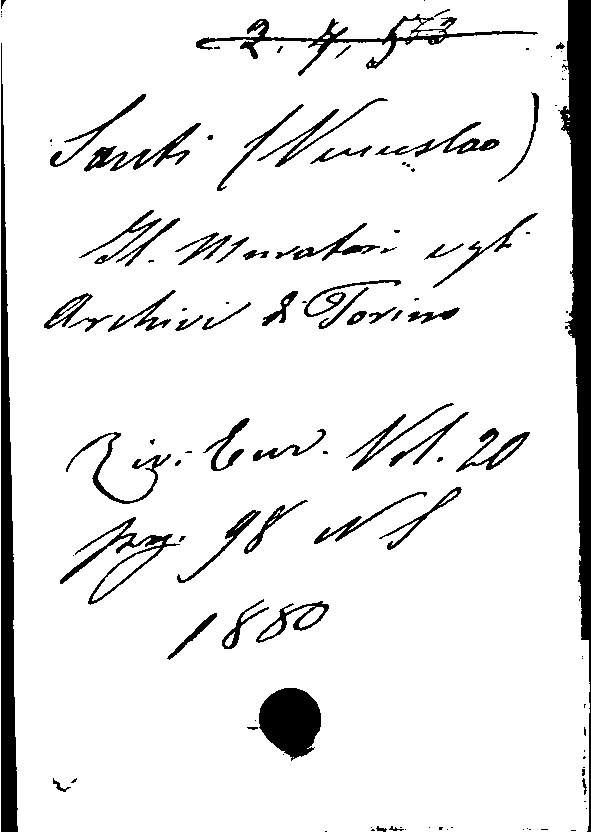 2. 4, 573
Santi (Venceslao)
Il Muratori e gli
Archivi di Torino
Riv. Eur. Vol. 20
pag. 98 N S
1880